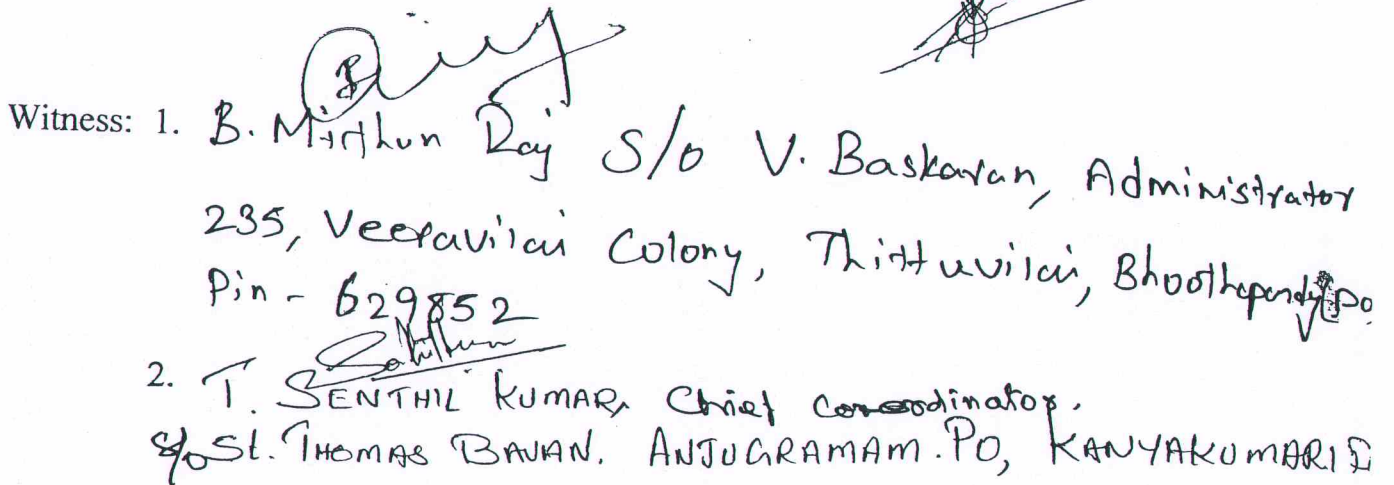 Witness: 1. B. Mithun Raj S/o V. Baskaran, Administrator
235, Veeravilai Colony, Thittuvilai, Bhoothapandy PO
Pin - 629852
2. T. SENTHIL KUMAR, Chief Co-ordinator.
S/o St. THOMAS BAVAN. ANJUGRAMAM. PO, KANYAKUMARI